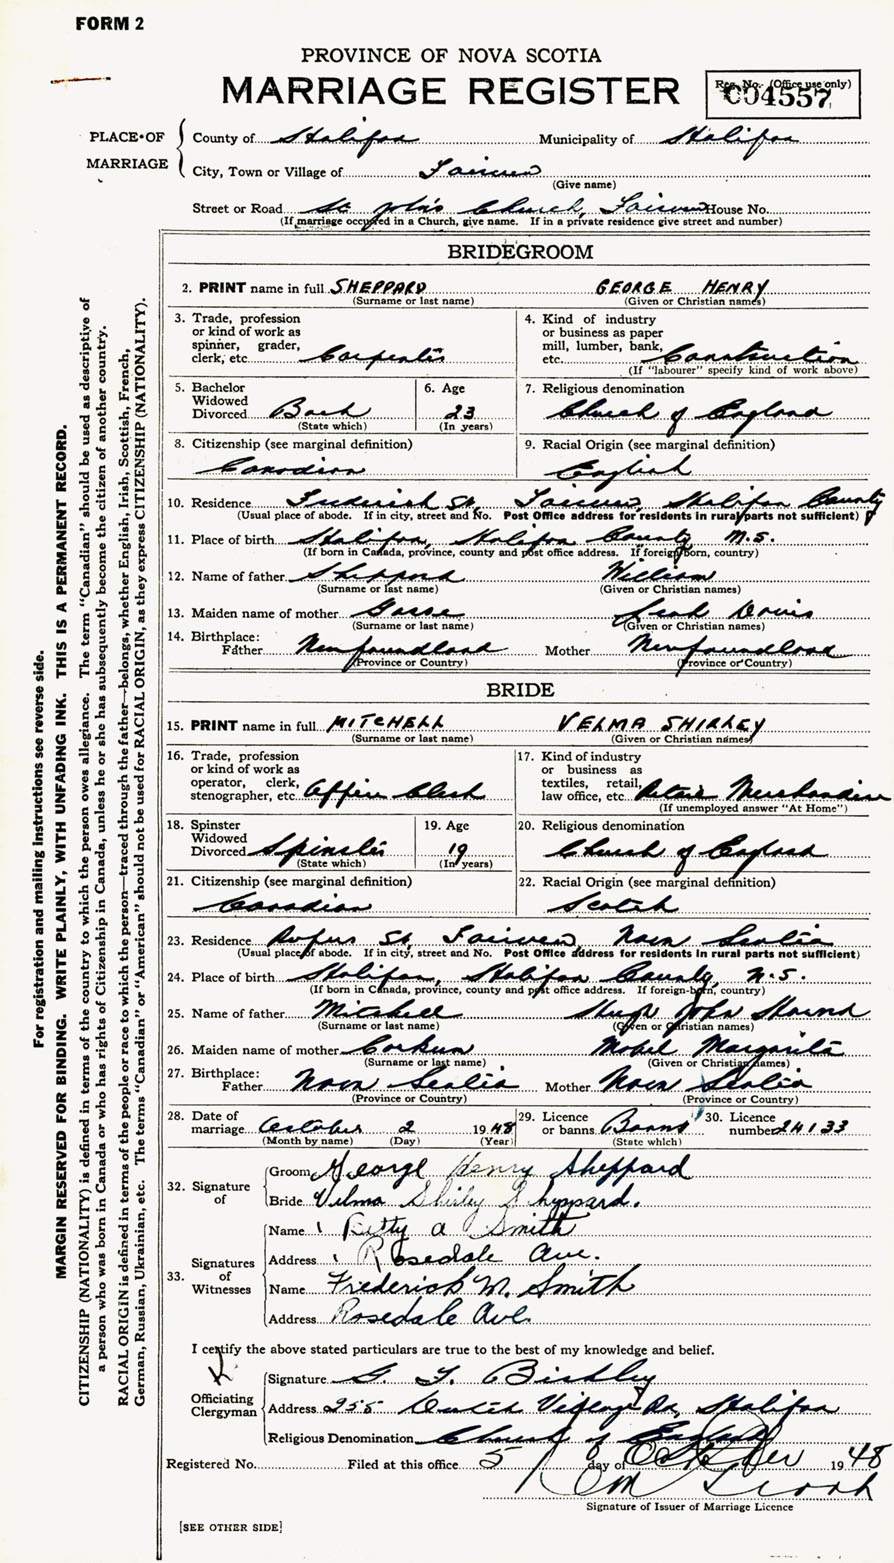 FORM 2
PROVINCE OF NOVA SCOTIA
MARRIAGE REGISTER
Reg. No. (Office use only)
C04557
PLACE OF MARRIAGE
County of Halifax Municipality of Halifax
City, Town or Village of Fairview
(Give name)
Street or Road St John's Church, Fairview House No.
(If marriage occupied in a Church, give name. If in a private residence give street and number)
BRIDEGROOM
2. PRINT name in full SHEPPARD GEORGE HENRY
(Surname or last name) (Given or Christian names)
3. Trade, profession or kind of work as spinner, grader, clerk, etc. Carpenter
4. Kind of industry or business as paper mill, lumber, bank, etc. Construction
(If "labourer" specify kind of work above)
5. Bachelor Widowed Divorced Bach
(State which)
6. Age 23
(In years)
7. Religious denomination Church of England
8. Citizenship (see marginal definition) Canadian
9. Racial Origin (see marginal definition) English
10. Residence Frederick St. Fairview, Halifax County
(Usual place of abode. If in city, street and No. Post Office address for residents in rural parts not sufficient)
11. Place of birth Halifax, Halifax County, N.S.
(If born in Canada, province, county and post office address. If foreign born, country)
12. Name of father Sheppard William
(Surname or last name) (Given or Christian names)
13. Maiden name of mother Gosse Leah Davis
(Surname or last name) (Given or Christian names)
14. Birthplace: Father Newfoundland Mother Newfoundland
(Province or Country) (Province or Country)
BRIDE
15. PRINT name in full MITCHELL VELMA SHIRLEY
(Surname or last name) (Given or Christian names)
16. Trade, profession or kind of work as operator, clerk, stenographer, etc. Office Clerk
17. Kind of industry or business as textiles, retail, law office, etc. Retail Merchandise
(If unemployed answer "At Home")
18. Spinster Widowed Divorced Spinster
(State which)
19. Age 19
(In years)
20. Religious denomination Church of England
21. Citizenship (see marginal definition) Canadian
22. Racial Origin (see marginal definition) Scotch
23. Residence Rufus St. Fairview, Nova Scotia
(Usual place of abode. If in city, street and No. Post Office address for residents in rural parts not sufficient)
24. Place of birth Halifax, Halifax County, N.S.
(If born in Canada, province, county and post office address. If foreign-born, country)
25. Name of father Mitchell Hugh John
(Surname or last name) (Given or Christian names)
26. Maiden name of mother Corkum Mabel Margarita
(Surname or last name) (Given or Christian names)
27. Birthplace: Father Nova Scotia Mother Nova Scotia
(Province or Country) (Province or Country)
28. Date of marriage October 2 1948
(Month by name) (Day) (Year)
29. Licence or banns Banns
(State which)
30. Licence number 24133
32. Signature of
Groom George Henry Sheppard
Bride Velma Shirley Sheppard.
33. Signatures of Witnesses
Name Betty A Smith
Address Rosedale Ave.
Name Frederick M. Smith
Address Rosedale Ave.
I certify the above stated particulars are true to the best of my knowledge and belief.
Officiating Clergyman
Signature
Address 255 Dutch Village Rd, Halifax
Religious Denomination Church of England
Registered No. Filed at this office 5 day of October 1948
Signature of Issuer of Marriage Licence
[SEE OTHER SIDE]
For registration and mailing instructions see reverse side.
MARGIN RESERVED FOR BINDING. WRITE PLAINLY, WITH UNFADING INK. THIS IS A PERMANENT RECORD.
CITIZENSHIP (NATIONALITY) is defined in terms of the country to which the person owes allegiance. The term "Canadian" should be used as descriptive of
a person who was born in Canada or who has rights of Citizenship in Canada, unless he or she has subsequently become the citizen of another country.
RACIAL ORIGIN is defined in terms of the people or race to which the person—traced through the father—belongs, whether English, Irish, Scottish, French,
German, Russian, Ukrainian, etc. The terms "Canadian" or "American" should not be used for RACIAL ORIGIN, as they express CITIZENSHIP (NATIONALITY).